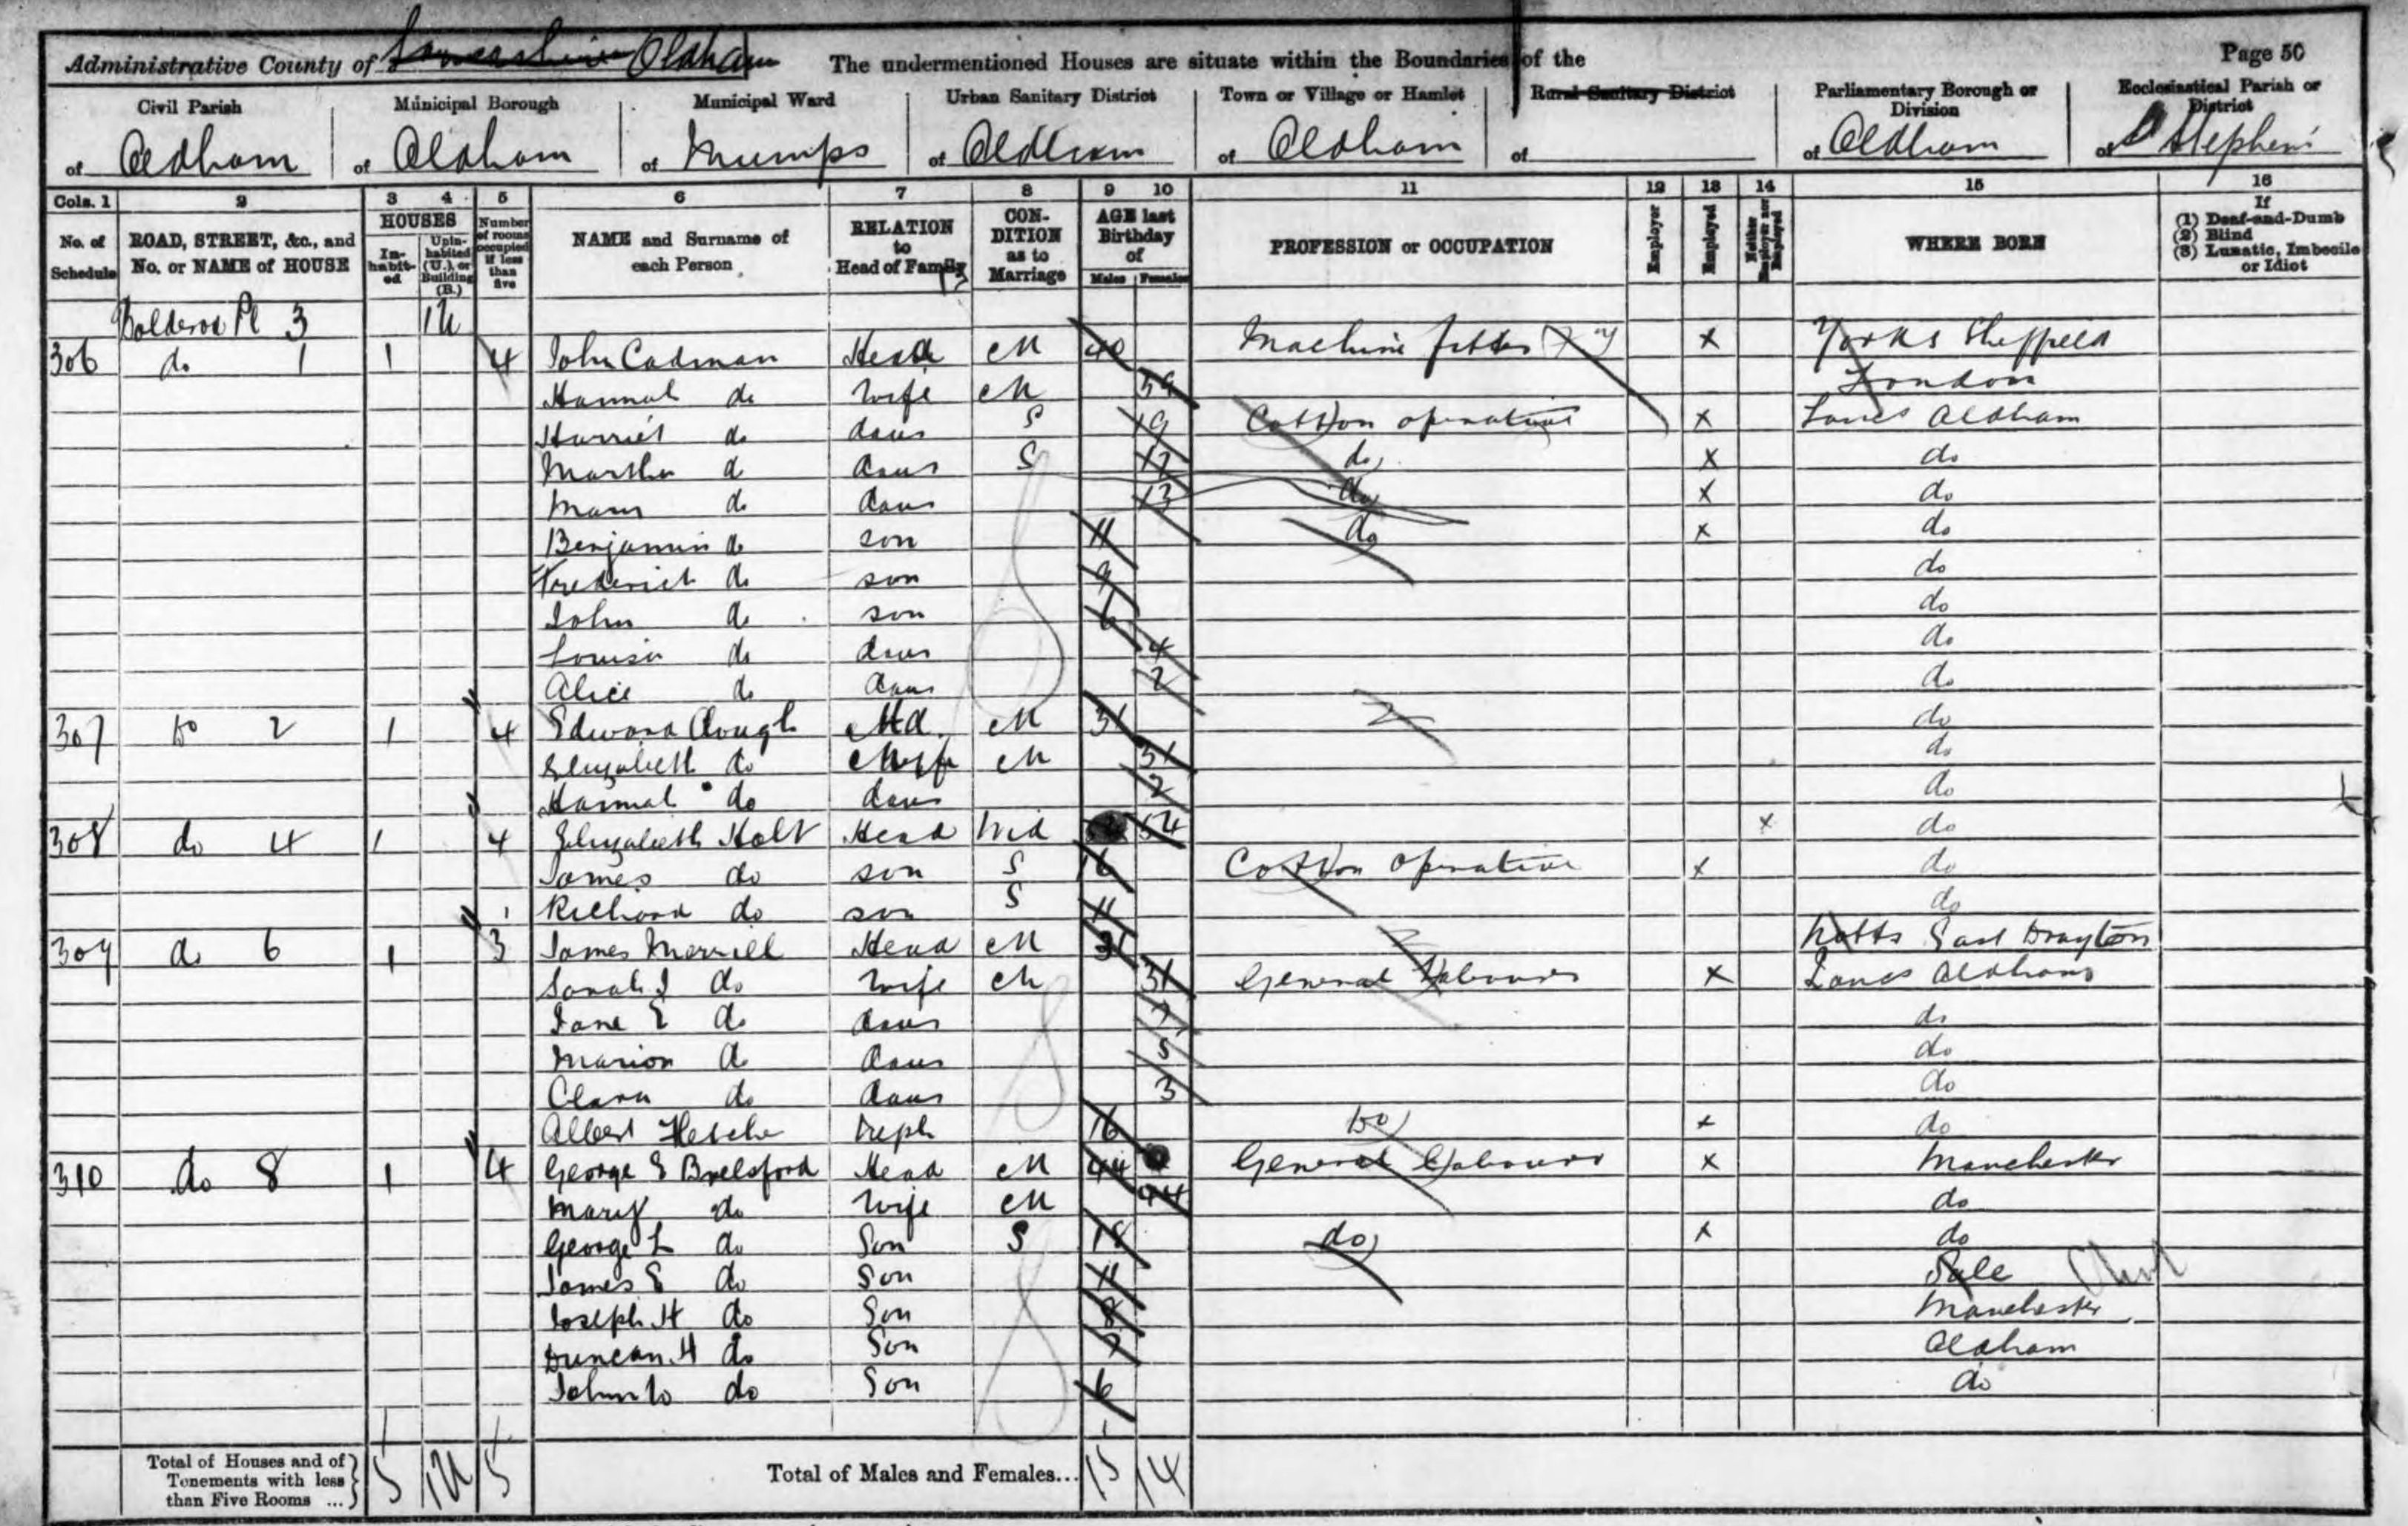 Administrative County of Lancashire Oldham The undermentioned Houses are situate within the Boundaries of the Page 50
Civil Parish Municipal Borough Municipal Ward Urban Sanitary District Town or Village or Hamlet Rural Sanitary District Parliamentary Borough or Division Ecclesiastical Parish or District
of Oldham of Oldham of Mumps of Oldham of Oldham of of Oldham of St Stephens
Cols. 1 2 3 4 5 6 7 8 9 10 11 12 13 14 15 16
No. of Schedule ROAD, STREET, &c., and No. or NAME of HOUSE HOUSES In-habit-ed Unin-habited (U.), or Building (B.) Number of rooms occupied if less than five NAME and Surname of each Person RELATION to Head of Family CON-DITION as to Marriage AGE last Birthday of Males Females PROFESSION or OCCUPATION Employer Employed Neither Employer nor Employed WHERE BORN If (1) Deaf-and-Dumb (2) Blind (3) Lunatic, Imbecile or Idiot
Pl 3 1U
306 do 1 1 4 John Cadman Head M 40 Machine fitter X Yorks Sheffield
Hannah do Wife M 39 London
Harriet do daur S 19 Cotton operative X Lancs Oldham
Martha d daur S 17 do X do
Mary do daur 13 do X do
Benjamin do son 11 do X do
Frederick do son 9 do
John do son 6 do
Louisa do daur 4 do
Alice do daur 2 do
307 Do 2 1 4 Edward Clough Hd M 31 do
Elizabeth do Wife M 31 do
Hannah do daur 2 do
308 do 4 1 4 Elizabeth Holt Head Wid 54 X do
James do son S 16 Cotton Operative X do
Richard do son S 11 do
309 do 6 1 3 James Merrill Head M 31 Notts East Drayton
Sarah J do Wife M 31 General Labourer X Lancs Oldham
Jane E do daur 7 do
Marion do daur 5 do
Clara do daur 3 do
Albert Neph 16 Do X do
310 do 8 1 4 George E Brelsford Head M 44 General Labourer X Manchester
Mary do Wife M 44 do
George L do Son S 18 do X do
James E do Son 11 Sale
Joseph H do Son 8 Manchester
Duncan H do Son 7 Oldham
John W do Son 6 do
Total of Houses and of Tenements with less than Five Rooms ... 5 1U 5 Total of Males and Females... 15 14